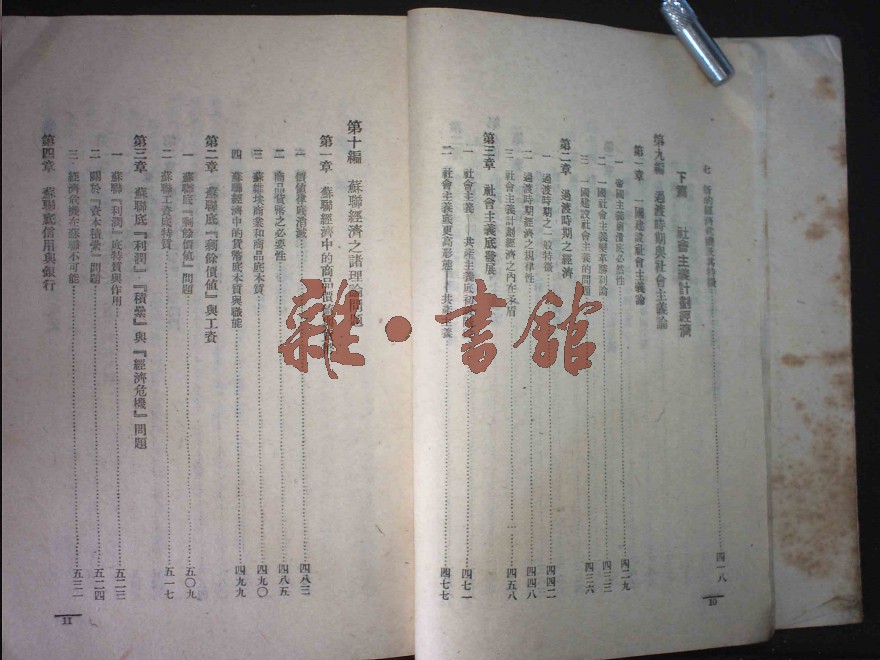 七 新的經濟危機及其特徵……四一八
下篇 社會主義計劃經濟
第九編 過渡時期與社會主義論
第一章 一國建設社會主義論
一 帝國主義崩潰底必然性……四二九
二 一國社會主義變革勝利論……四三三
三 一國建設社會主義的問題……四三六
第二章 過渡時期之經濟
一 過渡時期之一般特徵……四四二
二 過渡時期經濟之規律性……四四八
三 社會主義計劃經濟之內在矛盾……四五八
第三章 社會主義底發展
一 社會主義——共產主義底初……四七一
二 社會主義底更高形態——共產主義……四七七
10
第十編 蘇聯經濟之諸理論問題
第一章 蘇聯經濟中的商品價
一 價値律底消滅……四八三
二 商品貨幣之必要性……四八五
三 蘇維埃商業和商品底本質……四九〇
四 蘇聯經濟中的貨幣底本質與職能……四九九
第二章 蘇聯底『剩餘價值』與工資
一 蘇聯底『剩餘價值』問題……五〇九
二 蘇聯工資底特質……五一七
第三章 蘇聯底『利潤』『積壘』與『經濟危機』問題
一 蘇聯『利潤』底特質與作用……五二三
二 關於『資本積壘』問題……五二四
三 經濟危機在蘇聯不可能……五三一
第四章 蘇聯底信用與銀行
11
雜·書館